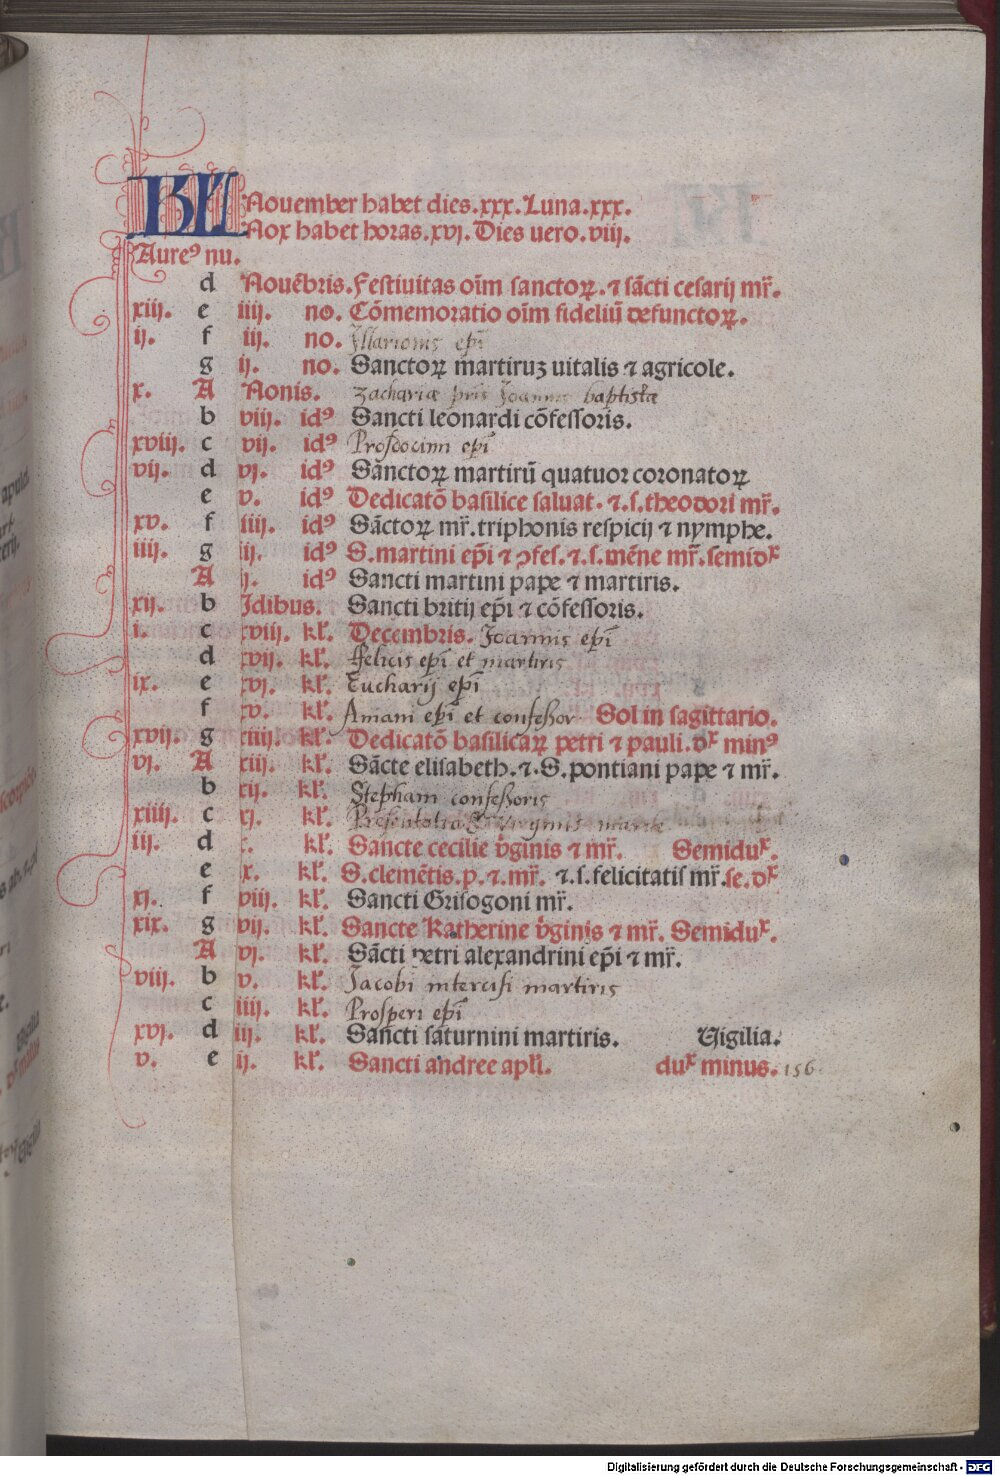 KL Nouember habet dies.xxx.Luna.xxx.
Nox habet horas.xvj.Dies uero.viij.
Aureꝰ nu.
d Nouẽbris.Festiuitas oĩm sanctoꝝ.⁊ sãcti cesarij mr̃.
xiij. e iiij. no. Cõmemoratio oĩm fideliũ defunctoꝝ.
ij. f iij. no. Illarionis epĩ
g ij. no. Sanctoꝝ martiruꝫ uitalis ⁊ agricole.
x. A Nonis. Zachariæ pr̃is Joannis baptistæ
b viij. idꝰ Sancti leonardi cõfessoris.
xviij. c vij. idꝰ Prosdocimi epĩ
vij. d vj. idꝰ Sanctoꝝ martirũ quatuor coronatoꝝ
e v. idꝰ Dedicatõ basilice saluat.⁊.s.theodori mr̃.
xv. f iiij. idꝰ Sãctoꝝ mr̃.triphonis respicij ⁊ nymphe.
iiij. g iij. idꝰ S.martini ep̃i ⁊ ↄfes.⁊.s.mẽne mr̃.semidx̃
A ij. idꝰ Sancti martini pape ⁊ martiris.
xij. b Idibus. Sancti britij ep̃i ⁊ cõfessoris.
i. c xviij. kl̃. Decembris. Joannis epĩ
d xvij. kl̃. Felicis epĩ et martiris
ix. e xvj. kl̃. Eucharij epĩ
f xv. kl̃. Amani epĩ et confessor Sol in sagittario.
xvij. g xiiij. kl̃. Dedicatõ basilicaꝝ petri ⁊ pauli.dx̃ minꝰ
vj. A xiij. kl̃. Sãcte elisabeth.⁊.S.pontiani pape ⁊ mr̃.
b xij. kl̃. Stephani confessoris
xiiij. c xj. kl̃. Presentatio virginis marie
iij. d x. kl̃. Sancte cecilie ṽginis ⁊ mr̃. Semidux̃.
e ix. kl̃. S.clemẽtis.p.⁊.mr̃. ⁊.s.felicitatis mr̃.se.dx̃
xj. f viij. kl̃. Sancti Grisogoni mr̃.
xix. g vij. kl̃. Sancte Katherine ṽginis ⁊ mr̃. Semidux̃.
A vj. kl̃. Sãcti petri alexandrini ep̃i ⁊ mr̃.
viij. b v. kl̃. Jacobi intercisi martiris
c iiij. kl̃. Prosperi epĩ
xvj. d iij. kl̃. Sancti saturnini martiris. Uigilia.
v. e ij. kl̃. Sancti andree apl̃i. dux̃ minus. 156
Digitalisierung gefördert durch die Deutsche Forschungsgemeinschaft - DFG